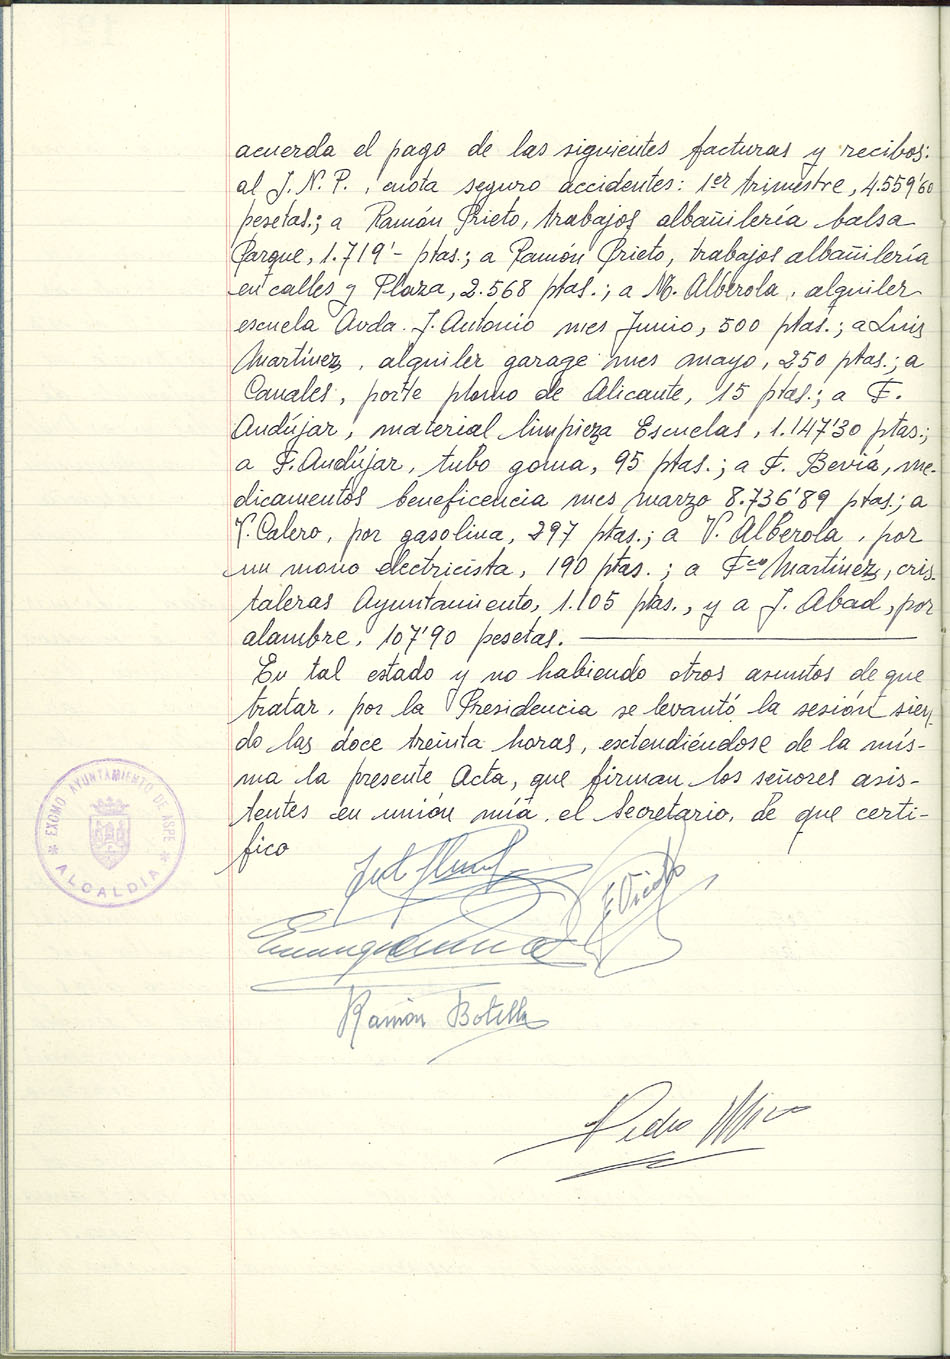 acuerda el pago de las siguientes facturas y recibos:
al J.N.P., cuota seguro accidentes: 1er trimestre, 4.559'60
pesetas.; a Ramón Prieto, trabajos albañilería balsa
Parque, 1.719'- ptas.; a Ramón Prieto, trabajos albañilería
en calles y Plaza, 2.568 ptas.; a M. Alberola, alquiler
escuela Avda. J. Antonio mes Junio, 500 ptas.; a Luis
Martínez, alquiler garage mes mayo, 250 ptas.; a
Canales, porte plomo de Alicante, 15 ptas.; a F.
Andújar, material limpieza Escuelas, 1.147'30 ptas.;
a F. Andújar, tubo goma, 95 ptas.; a F. Beviá, me-
dicamentos beneficencia mes marzo 8.736'89 ptas.; a
V. Calero, por gasolina, 297 ptas.; a V. Alberola, por
un mono electricista, 190 ptas.; a Fco Martínez, cris-
taleras Ayuntamiento, 1.105 ptas., y a J. Abad, por
alambre, 107'90 pesetas.
En tal estado y no habiendo otros asuntos de que
tratar, por la Presidencia se levantó la sesión sien-
do las doce treinta horas, extendiéndose de la mis-
ma la presente Acta, que firman los señores asis-
tentes en unión mía, el Secretario, de que certi-
fico
EXCMO AYUNTAMIENTO DE ASPE
* ALCALDIA *
E Vicedo
Ramón Botella
Pedro